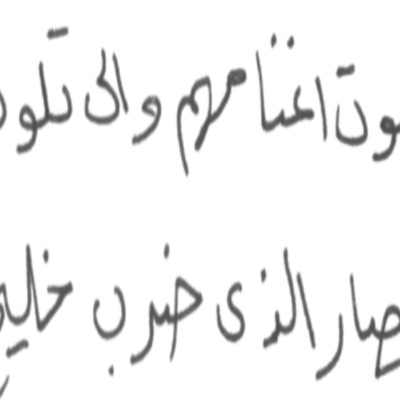 وت اغنامهم والى تلو
صار الذى ضرب خليج